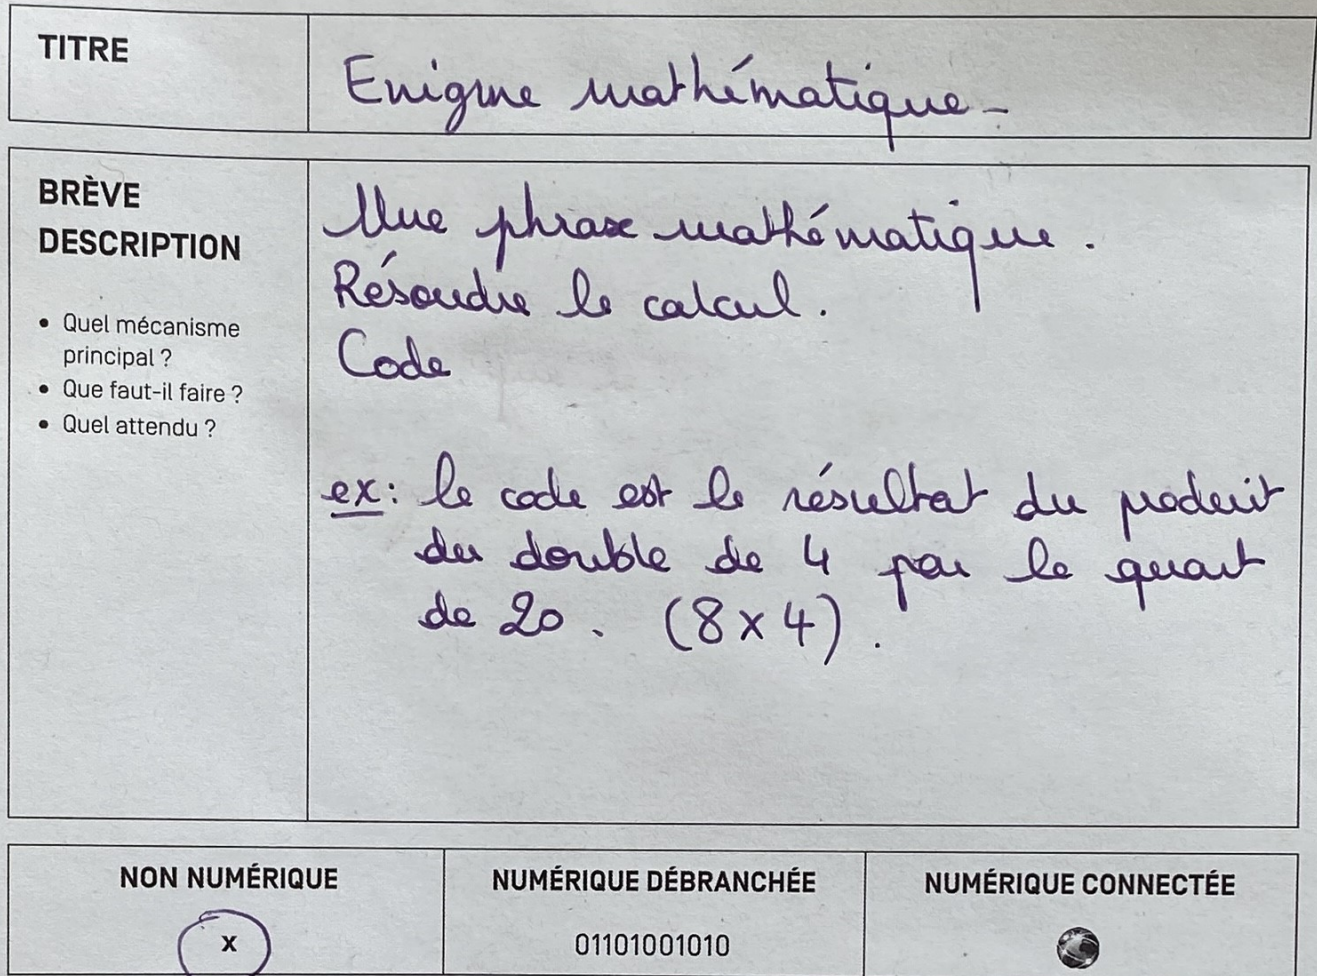 TITRE
Enigme mathématique -
BRÈVE
DESCRIPTION
• Quel mécanisme
principal ?
• Que faut-il faire ?
• Quel attendu ?
Une phrase mathématique.
Résoudre le calcul.
Code
ex: le code est le résultat du produit
du double de 4 par le quart
de 20. (8 x 4).
NON NUMÉRIQUE
x
NUMÉRIQUE DÉBRANCHÉE
01101001010
NUMÉRIQUE CONNECTÉE